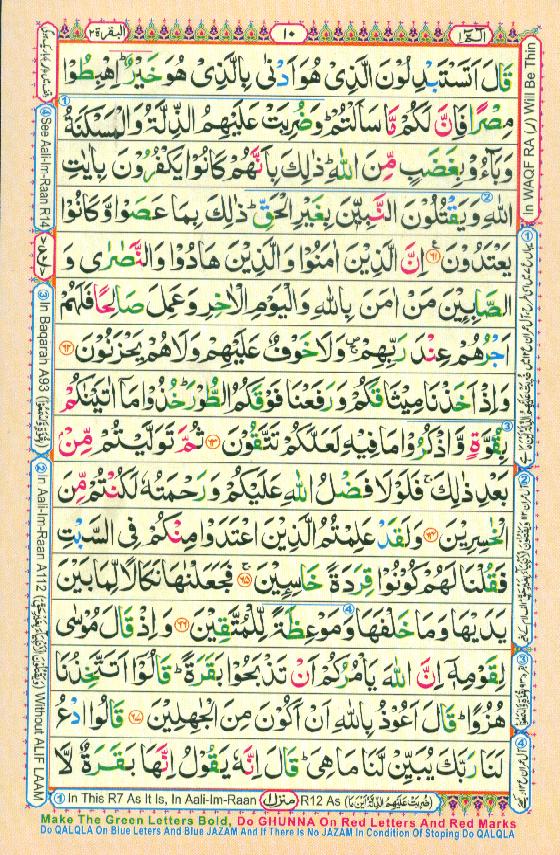 البقرة ٢
١٠
الٓمّٓ ١
قَالَ اَتَسْتَبْدِلُوْنَ الَّذِيْ هُوَ اَدْنٰى بِالَّذِيْ هُوَ خَيْرٌ ؕ اِهْبِطُوْا
مِصْرًا فَاِنَّ لَكُمْ مَّا سَاَلْتُمْ ؕ وَضُرِبَتْ عَلَيْهِمُ الذِّلَّةُ وَالْمَسْكَنَةُ
وَبَآءُوْ بِغَضَبٍ مِّنَ اللّٰهِ ؕ ذٰلِكَ بِاَنَّهُمْ كَانُوْا يَكْفُرُوْنَ بِاٰيٰتِ
اللّٰهِ وَيَقْتُلُوْنَ النَّبِيّٖنَ بِغَيْرِ الْحَقِّ ؕ ذٰلِكَ بِمَا عَصَوْا وَّكَانُوْا
يَعْتَدُوْنَ ۝٦١ اِنَّ الَّذِيْنَ اٰمَنُوْا وَالَّذِيْنَ هَادُوْا وَالنَّصٰرٰى وَ
الصّٰبِـِٕيْنَ مَنْ اٰمَنَ بِاللّٰهِ وَالْيَوْمِ الْاٰخِرِ وَعَمِلَ صَالِحًا فَلَهُمْ
اَجْرُهُمْ عِنْدَ رَبِّهِمْ ۚ وَلَا خَوْفٌ عَلَيْهِمْ وَلَا هُمْ يَحْزَنُوْنَ ۝٦٢
وَاِذْ اَخَذْنَا مِيْثَاقَكُمْ وَرَفَعْنَا فَوْقَكُمُ الطُّوْرَ ؕ خُذُوْا مَآ اٰتَيْنٰكُمْ
بِقُوَّةٍ وَّاذْكُرُوْا مَا فِيْهِ لَعَلَّكُمْ تَتَّقُوْنَ ۝٦٣ ثُمَّ تَوَلَّيْتُمْ مِّنْۢ
بَعْدِ ذٰلِكَ ۚ فَلَوْلَا فَضْلُ اللّٰهِ عَلَيْكُمْ وَرَحْمَتُهٗ لَكُنْتُمْ مِّنَ
الْخٰسِرِيْنَ ۝٦٤ وَلَقَدْ عَلِمْتُمُ الَّذِيْنَ اعْتَدَوْا مِنْكُمْ فِى السَّبْتِ
فَقُلْنَا لَهُمْ كُوْنُوْا قِرَدَةً خَاسِـِٕيْنَ ۝٦٥ فَجَعَلْنٰهَا نَكَالًا لِّمَا بَيْنَ
يَدَيْهَا وَمَا خَلْفَهَا وَمَوْعِظَةً لِّلْمُتَّقِيْنَ ۝٦٦ وَاِذْ قَالَ مُوْسٰى
لِقَوْمِهٖٓ اِنَّ اللّٰهَ يَاْمُرُكُمْ اَنْ تَذْبَحُوْا بَقَرَةً ؕ قَالُوْٓا اَتَتَّخِذُنَا
هُزُوًا ؕ قَالَ اَعُوْذُ بِاللّٰهِ اَنْ اَكُوْنَ مِنَ الْجٰهِلِيْنَ ۝٦٧ قَالُوا ادْعُ
لَنَا رَبَّكَ يُبَيِّنْ لَّنَا مَا هِىَ ؕ قَالَ اِنَّهٗ يَقُوْلُ اِنَّهَا بَقَرَةٌ لَّا
In WAQF RA (ر) Will Be Thin
④ See Aali-Im-Raan R14
③ In Baqarah A93
② In Aali-Im-Raan A112 Without ALIF LAAM
① In This R7 As It Is, In Aali-Im-Raan منزل ١ R12 As (ضُرِبَتْ عَلَيْهِمُ الذِّلَّةُ اَيْنَ مَا)
Make The Green Letters Bold, Do GHUNNA On Red Letters And Red Marks
Do QALQLA On Blue Leters And Blue JAZAM And If There Is No JAZAM In Condition Of Stoping Do QALQLA